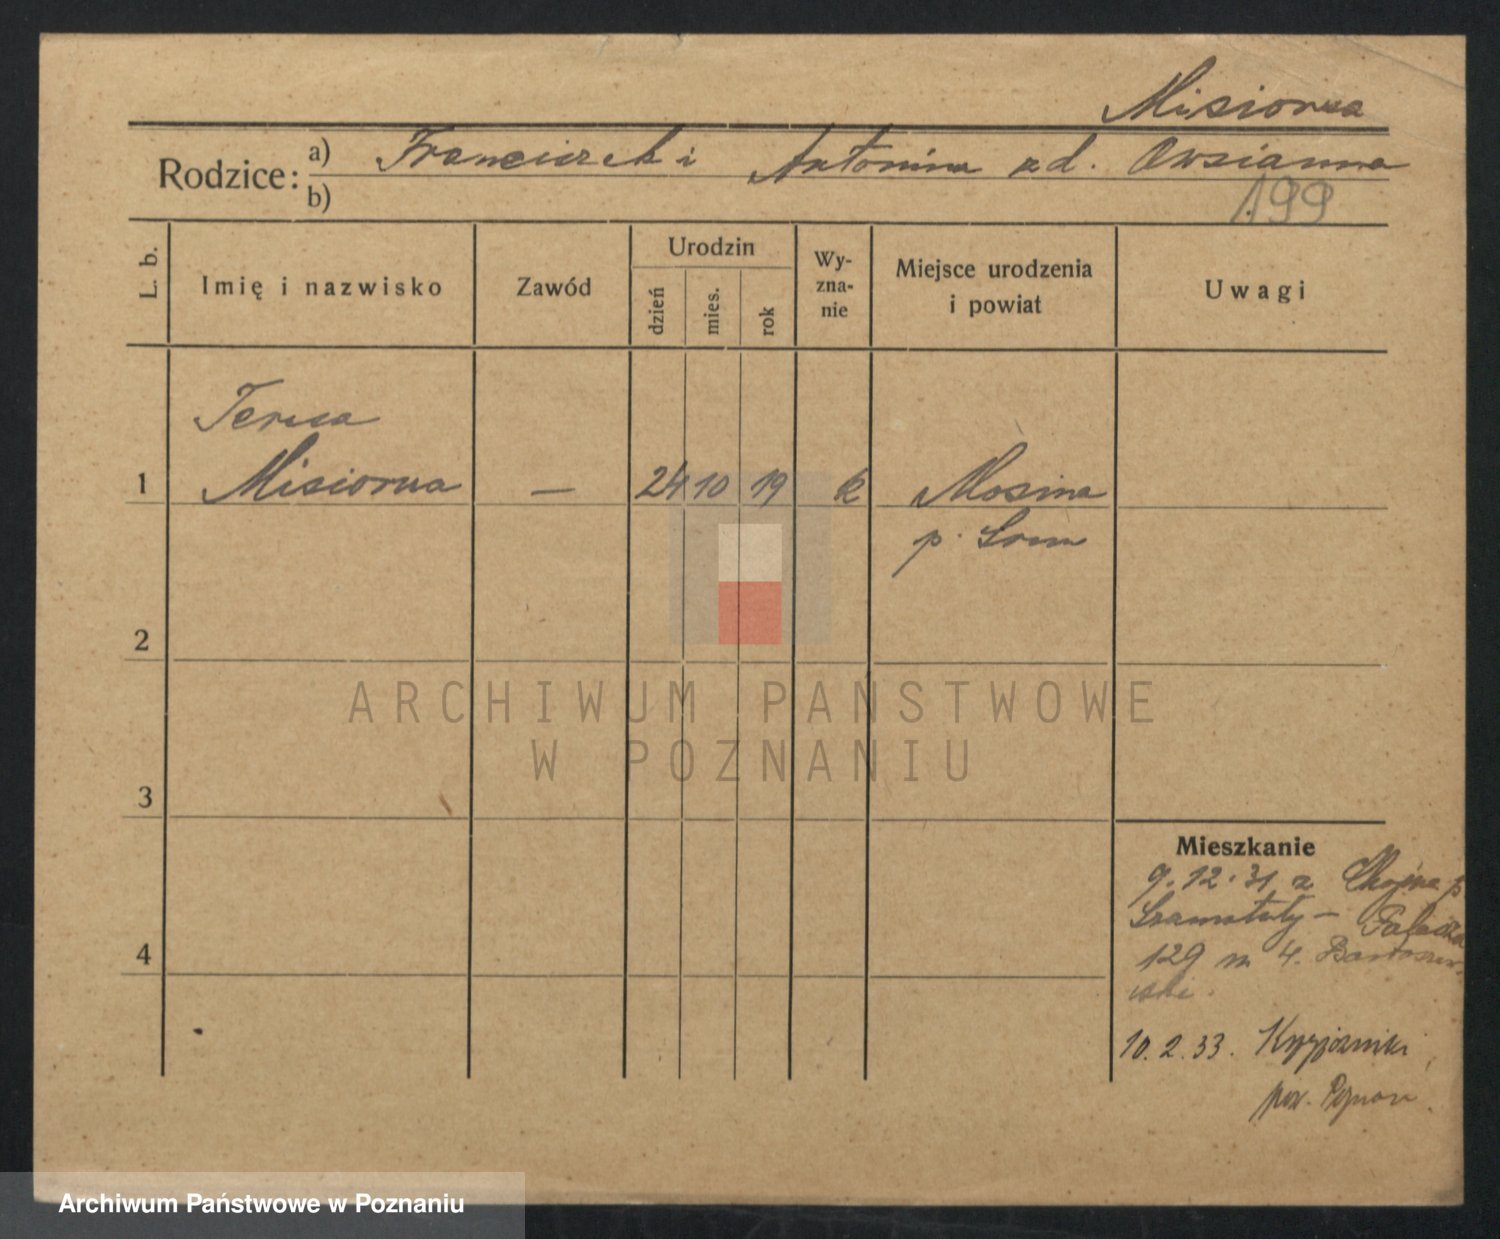 Misiorna
Rodzice: a) Franciszek i Antonina zd. Owsianna
b)
199
L. b.
Imię i nazwisko
Zawód
Urodzin
dzień
mies.
rok
Wy-
zna-
nie
Miejsce urodzenia
i powiat
Uwagi
Teresa
1 Misiorna — 24 10 19 k Mosina
p. Śrem
2
ARCHIWUM PAŃSTWOWE
W POZNANIU
3
Mieszkanie
9.12.31 z Chojna p
Szamotuły – Palacza
4
129 m 4. Bartoszew-
ski.
10.2.33. Krzyżowniki
pow. Poznań.
Archiwum Państwowe w Poznaniu